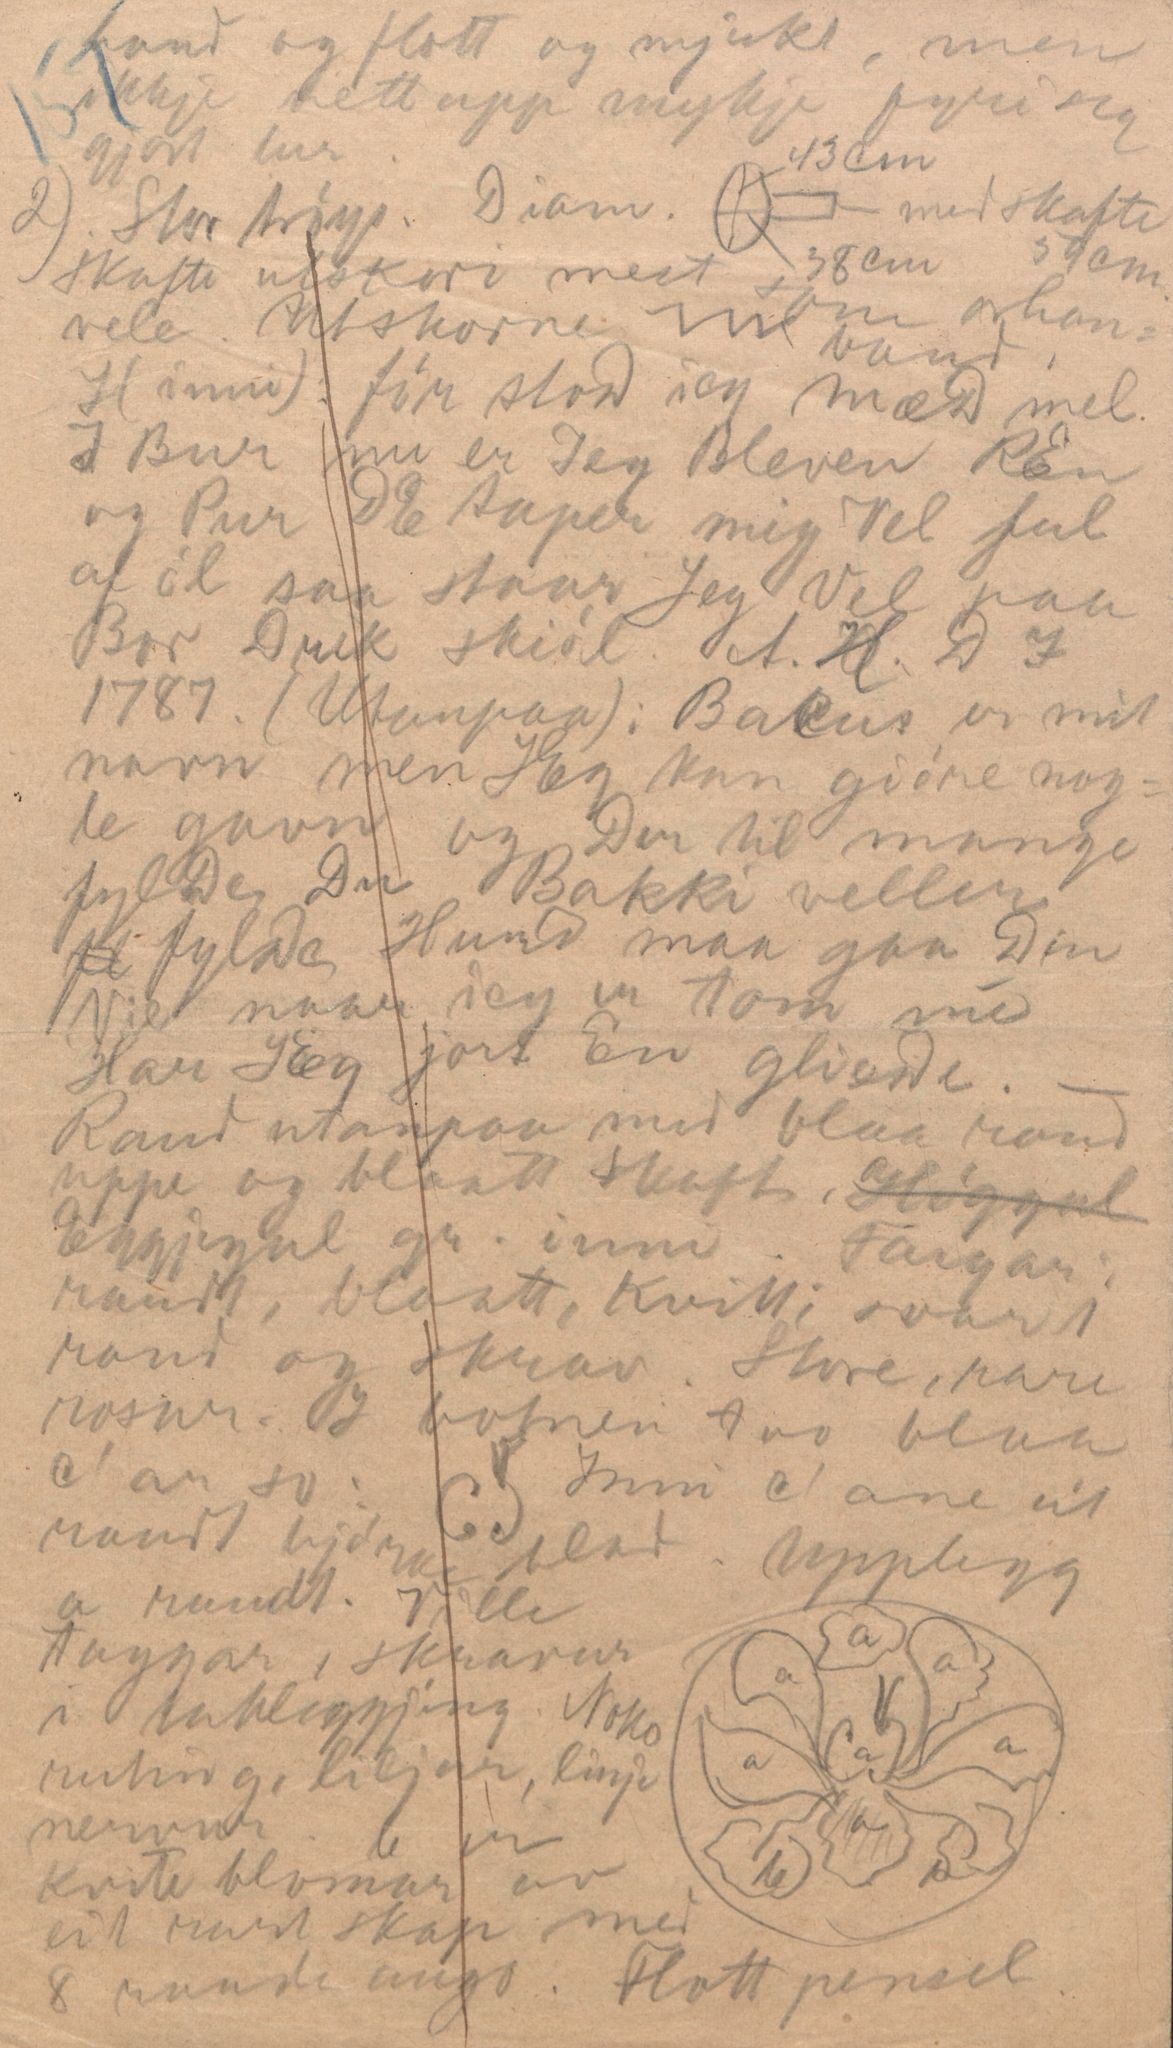 157
haand og flott og mjukt, men
ikkje rett upp mykje fyri seg
gjort her.
2). Stor trøys. Diam. 43 cm med skafte
38 cm 59 cm.
skafte utskori mest som orhan=
vele. Utskorne band.
I (inni): før stod ieg mæD mel
I Bur nu er Jeg Bleven REn
og Pur DE taper mig Vel ful
af öl saa staar Jeg Vel paa
Bor Druk skiöl. A. H. D I
1787. (Utanpaa): Bacus er mit
navn men JEg kan giöre nog=
le gavn og Der til mange
fylDe, Du Bakki veller
fylde Hund maa gaa Din
Vie naar ieg er tom me
Har JEg jort En gliede. —
Raud utanpaa med blaa rand
uppe og blaatt skaft,
Eggjegul gr. inni. Fargar:
raudt, blaatt, kvitt; svart
rand og skrav. Store, rare
rosur. I botnen tvo blaa
C'ar so: Inni C'ane eit
raudt bjørkeblad. Upplegg
a raudt. Ville
taggar, skravur
i utleggjing. Noko
ruting, liljur, linje
nervur. b er
kvite blomar av
eit rart skap med
8 raude augo. Flott pensel
a a a a a a a a b b